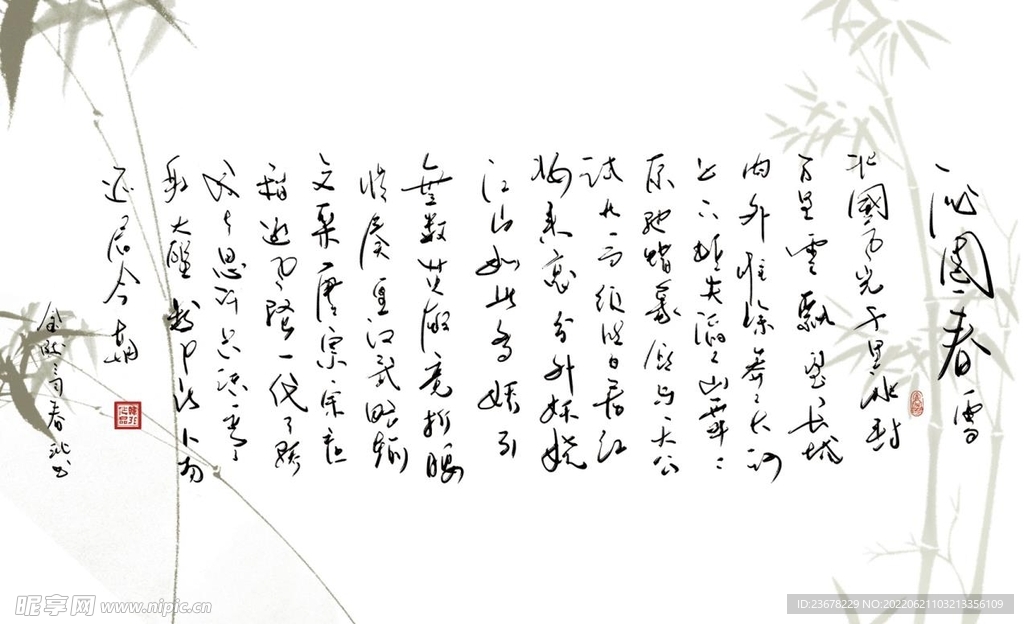 沁園春 雪
北國風光千里冰封
万里雪飘望长城
内外惟馀莽〻大河
上下顿失滔〻山舞
原驰蜡象欲与天公
试比高须晴日看红
妆素裹分外妖娆
江山如此多娇引
無数英雄竞折腰
惜秦皇汉武略输
文采唐宗宋祖
稍逊風骚一代天骄
成吉思汗只识弯
射大雕
还看今朝
春 书
昵享网 www.nipic.cn
ID:23678229 NO:20220621103213356109